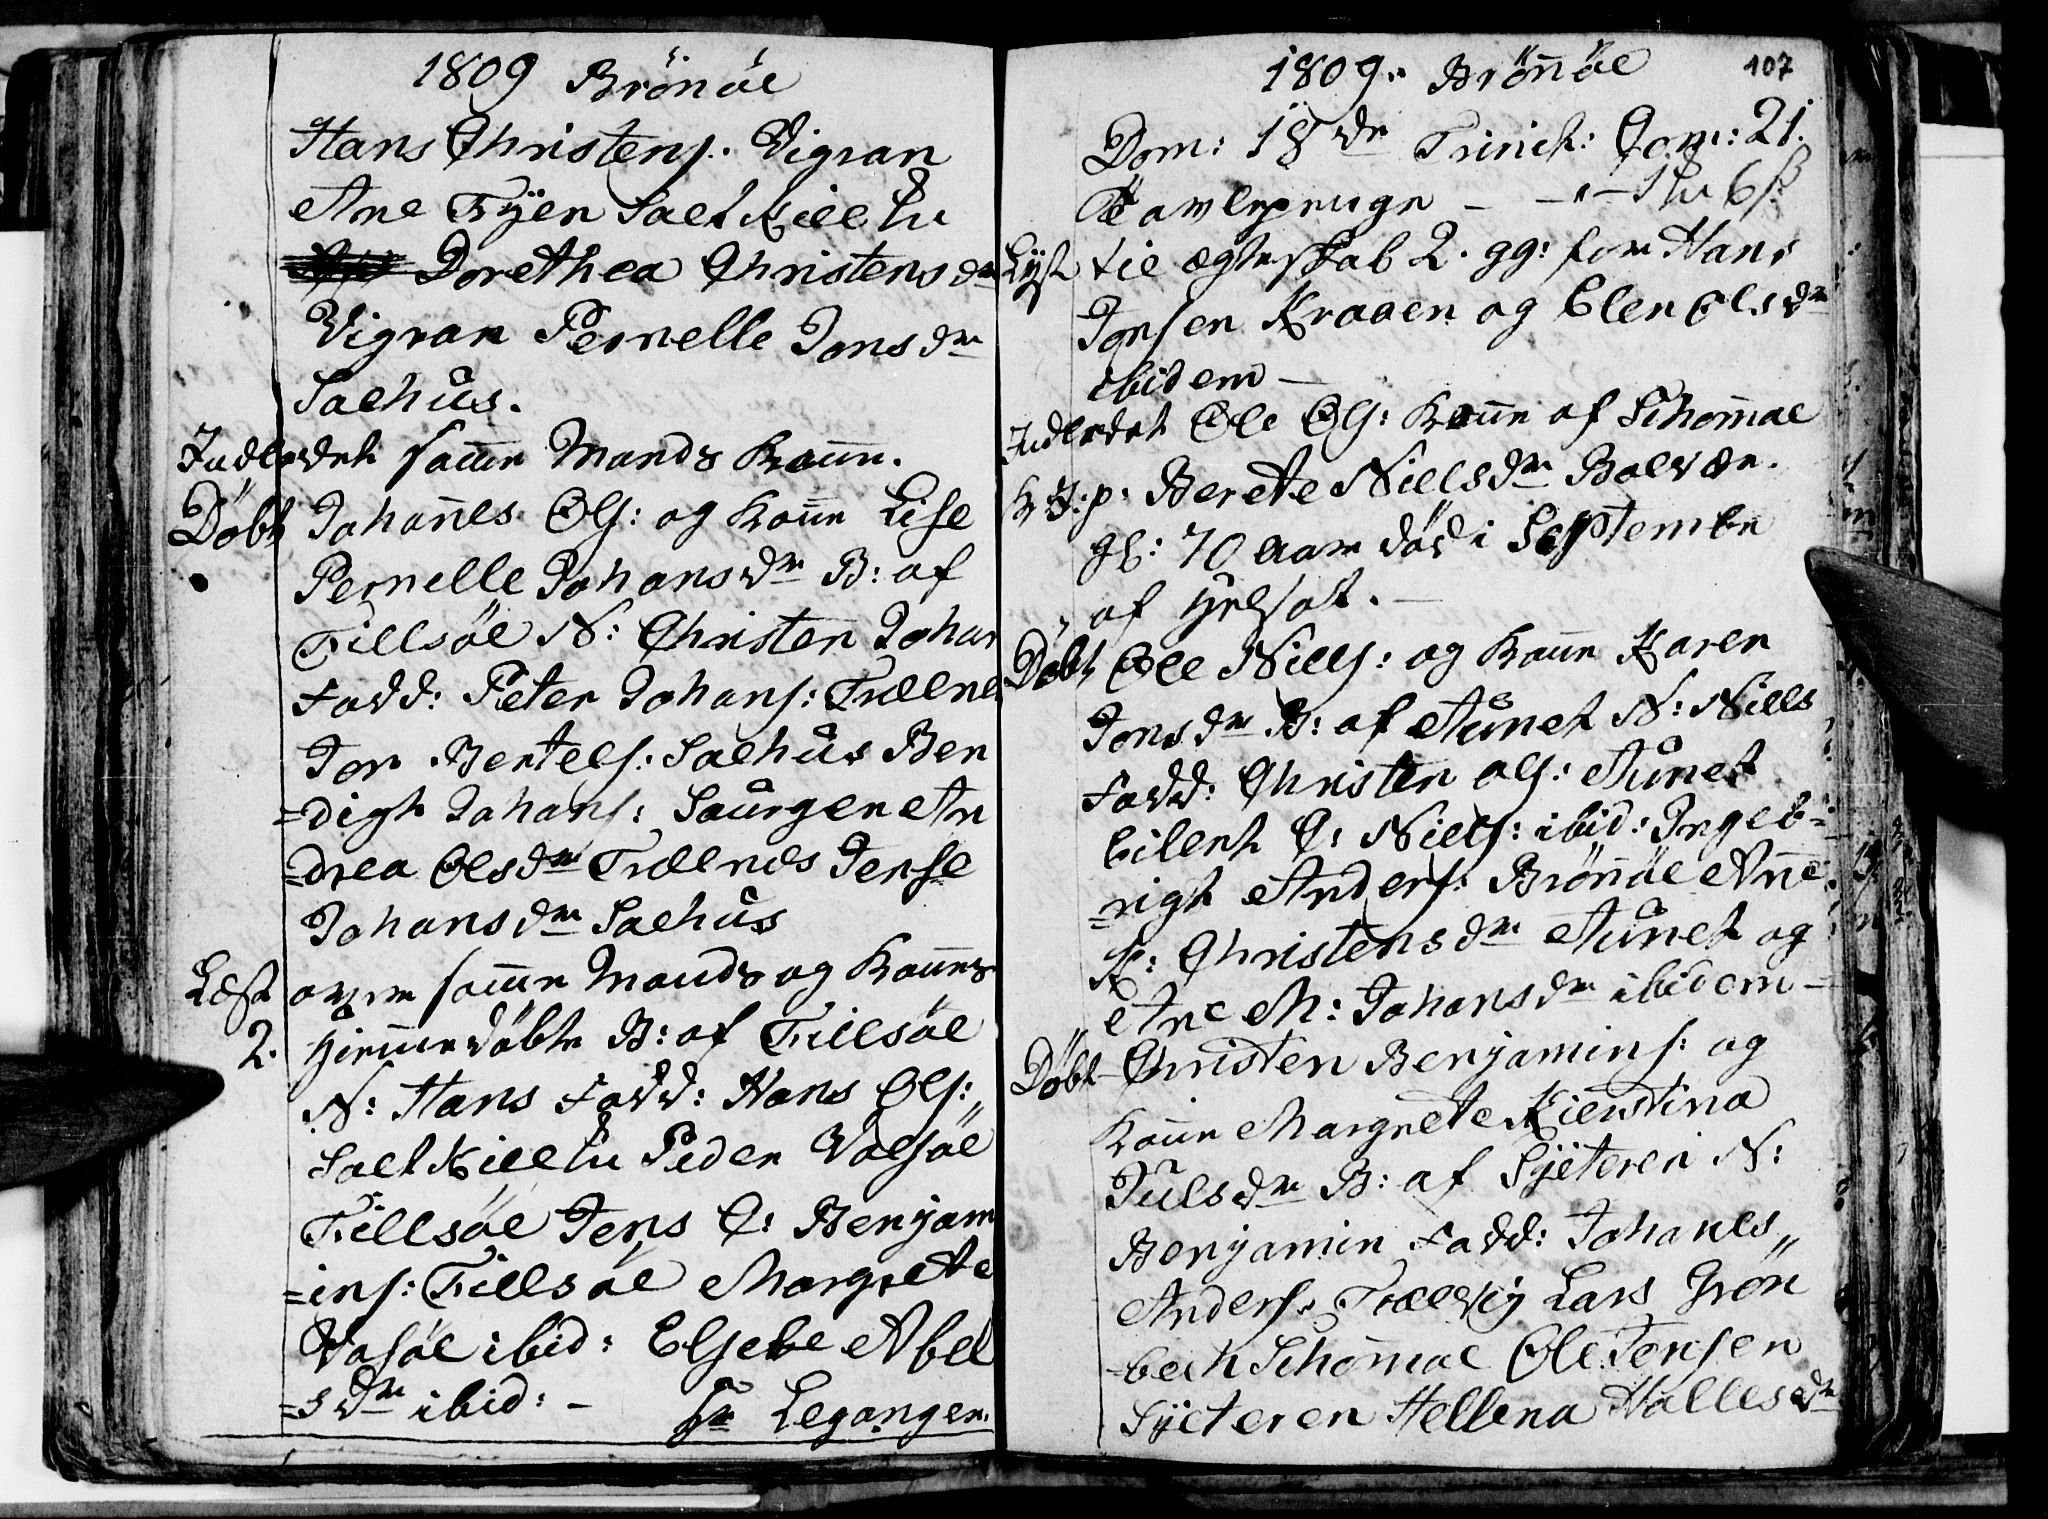 1809 Brönöe
Hans Christens: Vigran
Ane Fyen Salt Kieltu
Dorethea Christensdr
Vigran Pernelle Jonsdr
Salhus.
Indledet samme Mands Kone.
Döbt Johannes Ols: og Kone Lise
Pernelle Johansdr B: af
Tillsöe N: Christen Johan
Fadd: Peter Johans: Trælnes
Jon Bertels: Salhus Ben
=digt Johans: Saurgen An
=drea Olsdr Trælnes Jense
Johansdr Salhus
Læst over samme Mands og Kones
2. hiemmedöbte B: af Tillsöe
N: Hans Fadd: Hans Ols:
Salt Kieltu Peder Valsöe
Tillsöe Jens C: Benjam
=ins: Tillsöe Margrete
Vasöe ibid: Elsebe Abel
=sdr ibid: - Legangen.
1809. Brönnöe 107
Dom: 18de Trinit: Com: 21.
Tavlepenge - - 6 ß
Lyst til ægteskab 2. gg: for Hans
Jonsen Kraaen og Elen Olsdr
ibidem -
Indledet Ole Ols: Kone af Schomac
J:p: Berete Nielsdr Bolvær.
gl: 70 aar död i September
af
Döbt Ole Niels: og Kone Karen
Jonsdr B: af Aunet N: Niels
Fadd: Christen Ols: Aunet
Eilert C: Niels: ibid: Ingeb=
=rigt Anders: Brönnöe Anne
K: Christensdr Aunet og
Ane M: Johansdr ibidem -
Döbt Christen Benjamins: og
Kone Margrete Kierstina
Julsdr B: af Syeteren N:
Benjamin Fadd: Johanes
Anders: Trælvig Lars Grön
=bech Schomac Ole Jensen
Syeteren Hellena Hallesdr